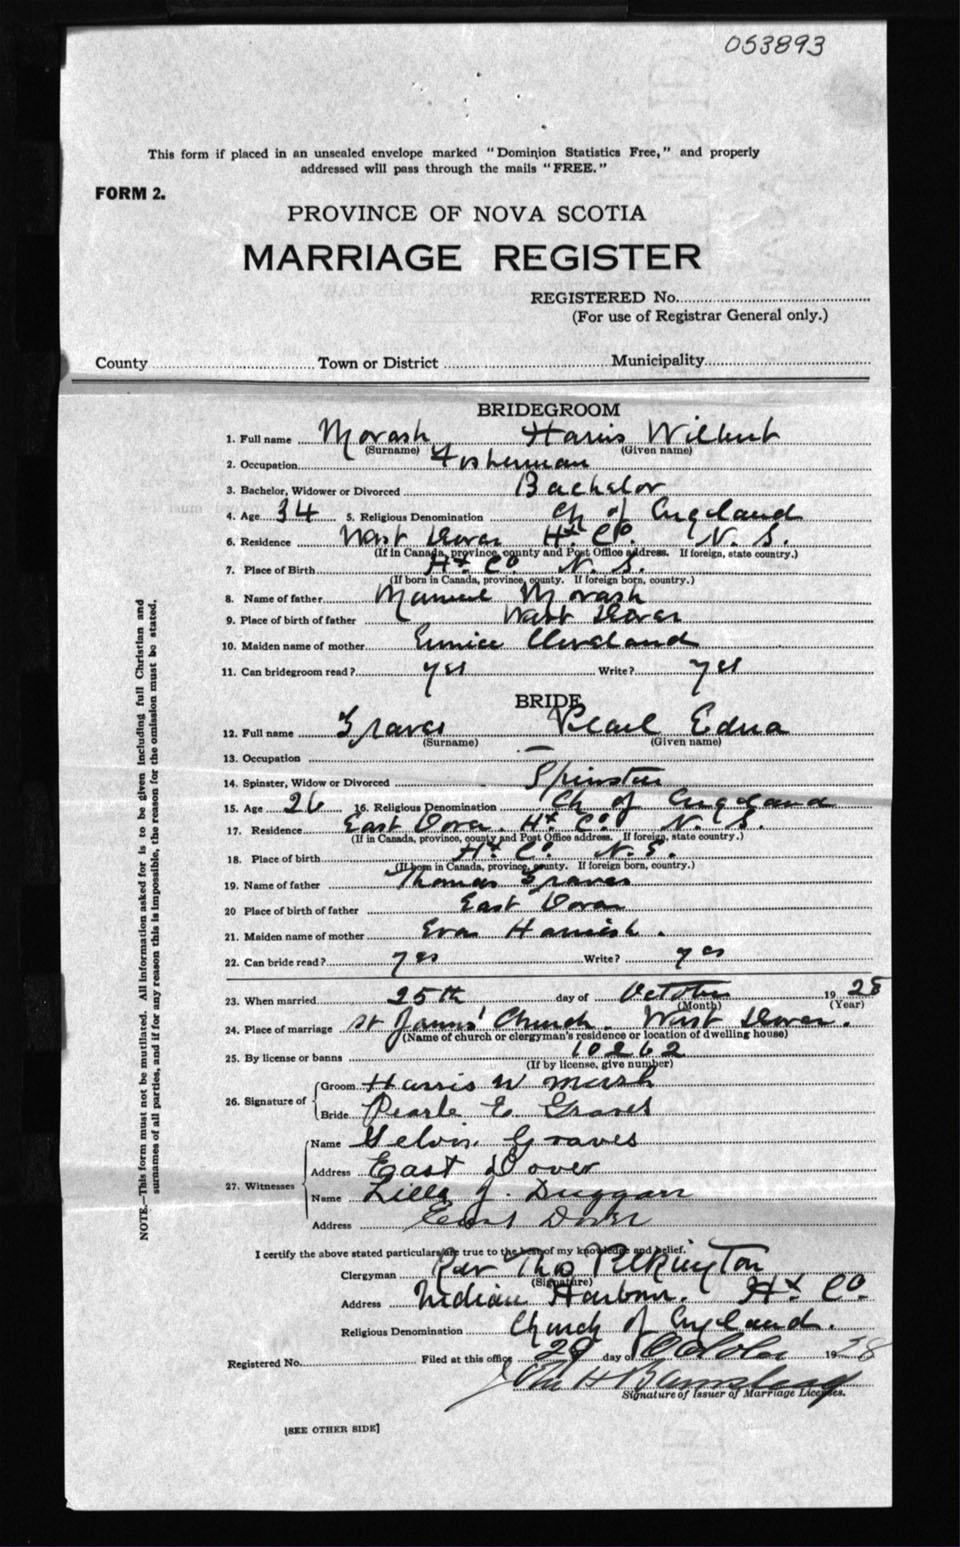 053893
This form if placed in an unsealed envelope marked "Dominion Statistics Free," and properly
addressed will pass through the mails "FREE."
FORM 2.
PROVINCE OF NOVA SCOTIA
MARRIAGE REGISTER
REGISTERED No.
(For use of Registrar General only.)
County Town or District Municipality
BRIDEGROOM
1. Full name Morash Harris Wilbert
(Surname) (Given name)
2. Occupation Fisherman
3. Bachelor, Widower or Divorced Bachelor
4. Age 34 5. Religious Denomination Ch of England
6. Residence West Dover Hx Co. N. S.
(If in Canada, province, county and Post Office address. If foreign, state country.)
7. Place of Birth Hx Co N. S.
(If born in Canada, province, county. If foreign born, country.)
8. Name of father Manuel Morash
9. Place of birth of father West Dover
10. Maiden name of mother Eunice Cleveland
11. Can bridegroom read? yes Write? yes
BRIDE
12. Full name Graves Pearl Edna
(Surname) (Given name)
13. Occupation —
14. Spinster, Widow or Divorced Spinster
15. Age 26 16. Religious Denomination Ch of England
17. Residence East Dover. Hx Co. N. S.
(If in Canada, province, county and Post Office address. If foreign, state country.)
18. Place of birth Hx Co. N. S.
(If born in Canada, province, county. If foreign born, country.)
19. Name of father Thomas Graves
20 Place of birth of father East Dover
21. Maiden name of mother Eva Harnish.
22. Can bride read? yes Write? yes
23. When married 25th day of October 1928
(Month) (Year)
24. Place of marriage St James' Church. West Dover.
(Name of church or clergyman's residence or location of dwelling house)
25. By license or banns 10262
(If by license, give number)
26. Signature of Groom Harris W
Bride Pearle E Graves
27. Witnesses Name Graves
Address East Dover
Name J. Duggan
Address East Dover
I certify the above stated particulars are true to the best of my knowledge and belief.
Clergyman Rev Thos Pilkington
(Signature)
Address Indian Harbour. Hx Co.
Religious Denomination Church of England.
Registered No. Filed at this office 29 day of October 1928
John H Barnstead
Signature of Issuer of Marriage Licenses.
[SEE OTHER SIDE]
NOTE.—This form must not be mutilated. All information asked for is to be given including full Christian and
surnames of all parties, and if for any reason this is impossible, the reason for the omission must be stated.